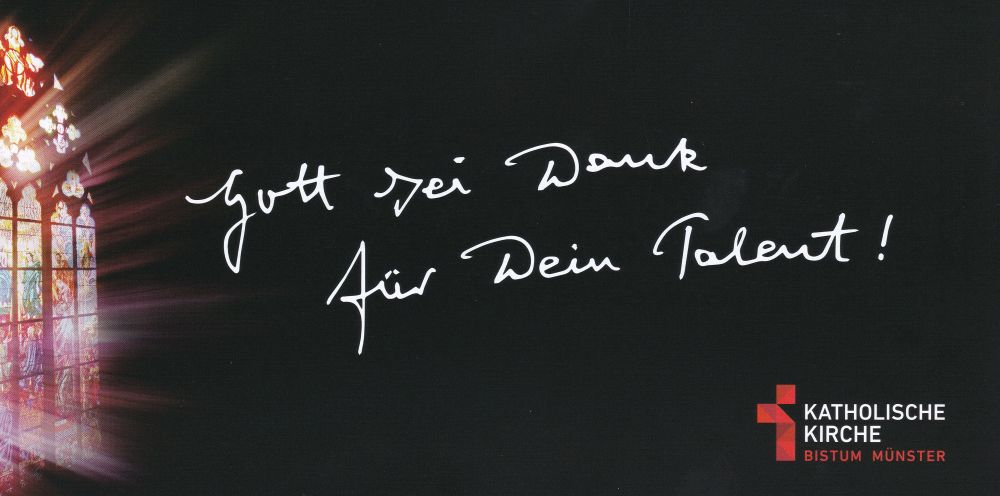 Gott sei Dank
für Dein Talent!
KATHOLISCHE
KIRCHE
BISTUM MÜNSTER